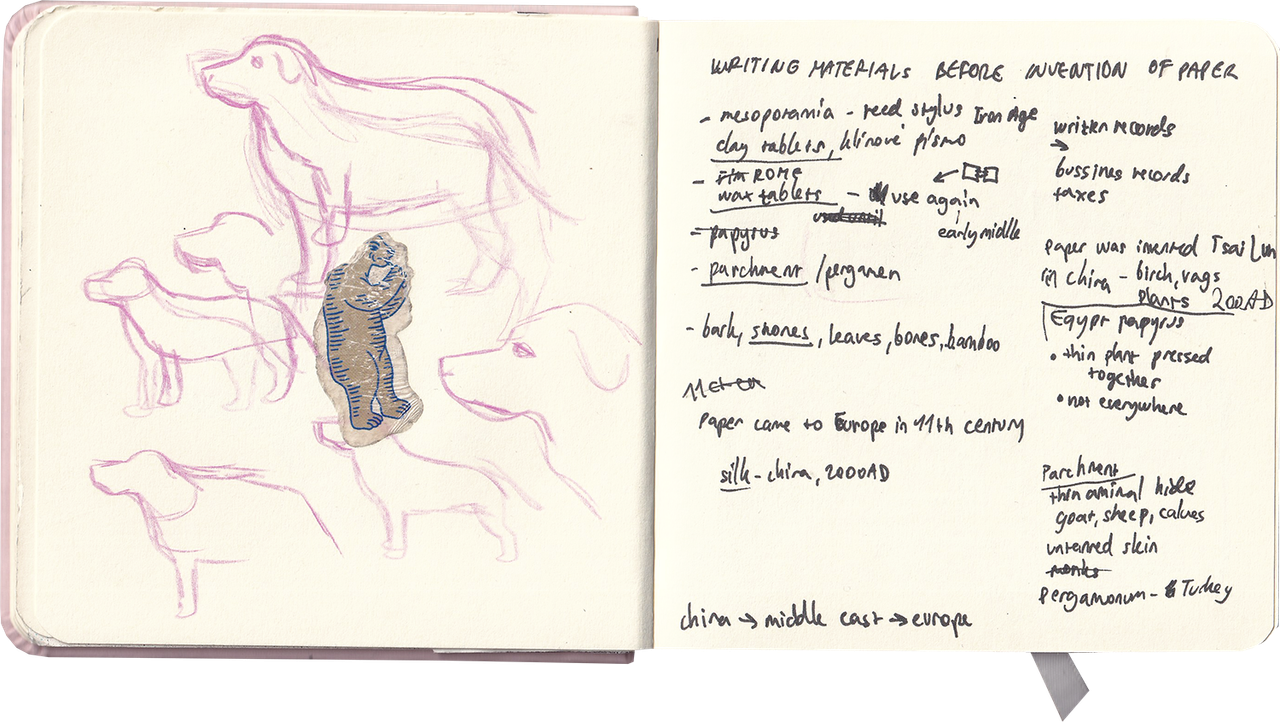 WRITING MATERIALS BEFORE INVENTION OF PAPER
- mesoporamia - reed stylus Iron Age
clay tablets, klínové písmo
- ROME
wax tablets - use again
early middle
- papyrus
- parchment / pergamen
- bark, stones, leaves, bones, bamboo
11
Paper came to Europe in 11th century
silk - china, 2000AD
china → middle east → europe
written records
→
bussines records
taxes
paper was invented Tsai Lun
in China - birch, rags
plants 200AD
Egypt papyrus
• thin plant pressed
together
• not everywhere
Parchment
thin aminal hide
goat, sheep, calves
untanned skin
monks
Pergamonum - Turkey